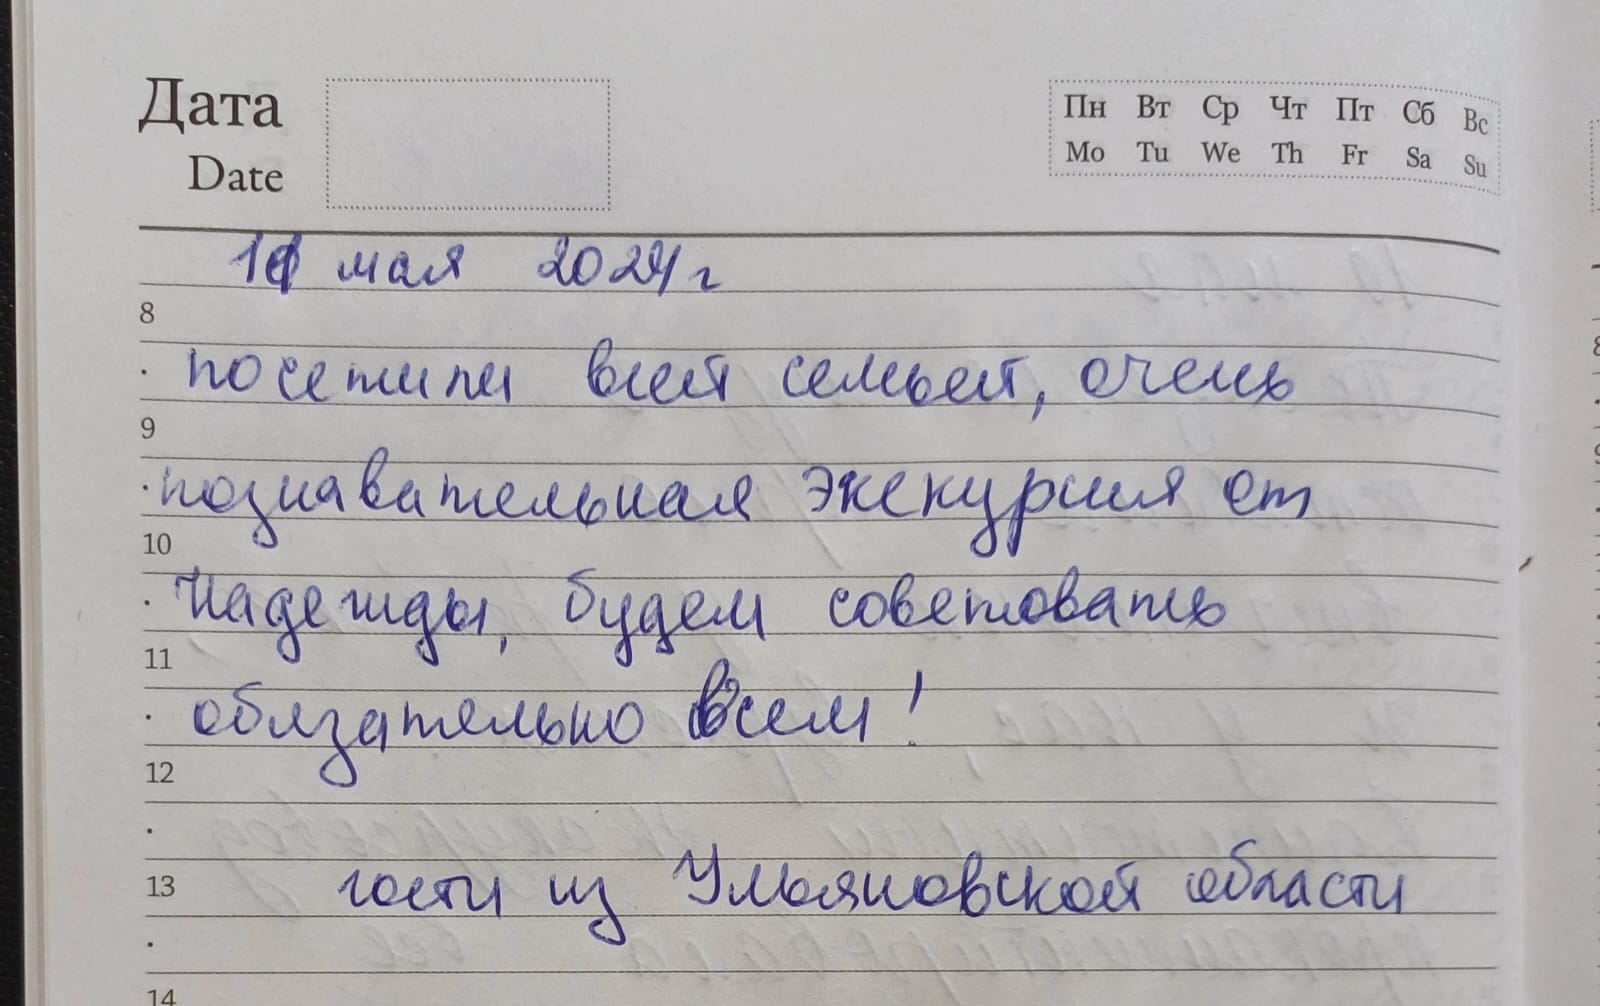 Дата
Date
Пн Вт Ср Чт Пт Сб Вс
Mo Tu We Th Fr Sa Su
мая 2024 г
8
посетили всей семьей, очень
9
познавательная экскурсия от
10
Надежды, будем советовать
11
обязательно всем!
12
13
гости из Ульяновской области
14